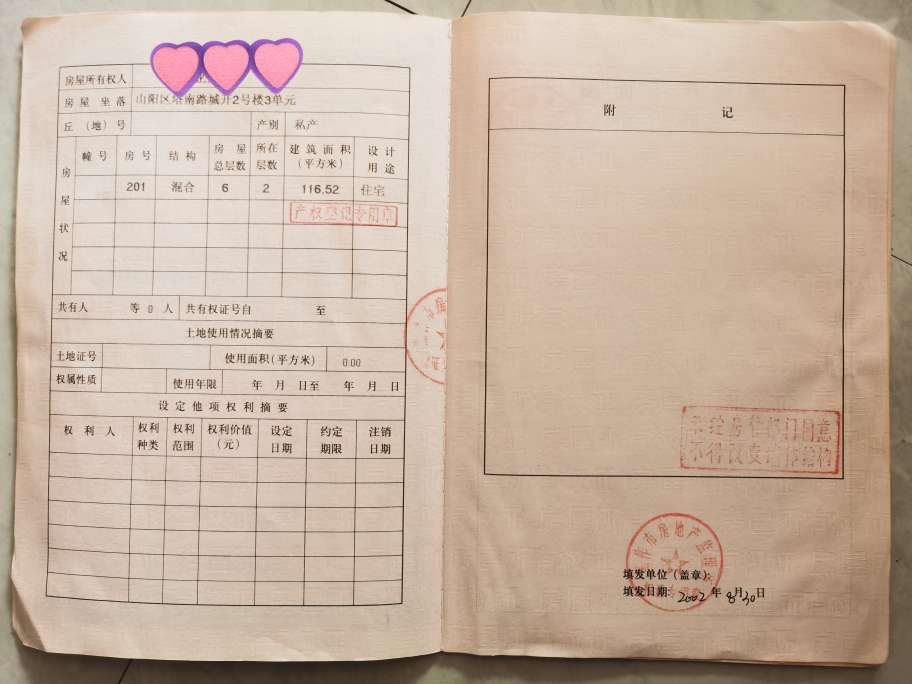 房屋所有权人
房屋坐落 山阳区塔南路城升2号楼3单元
丘（地）号 产别 私产
房屋状况
幢号 房号 结构 房屋总层数 所在层数 建筑面积（平方米） 设计用途
201 混合 6 2 116.52 住宅
产权登记专用章
共有人 等0人 共有权证号自 至
土地使用情况摘要
土地证号 使用面积(平方米) 0.00
权属性质 使用年限 年 月 日至 年 月 日
设定他项权利摘要
权利人 权利种类 权利范围 权利价值（元） 设定日期 约定期限 注销日期
附 记
未经房管部门同意
不得改变 结构
作市房地产监
填发单位（盖章）：
填发日期: 2002 年 8月30日